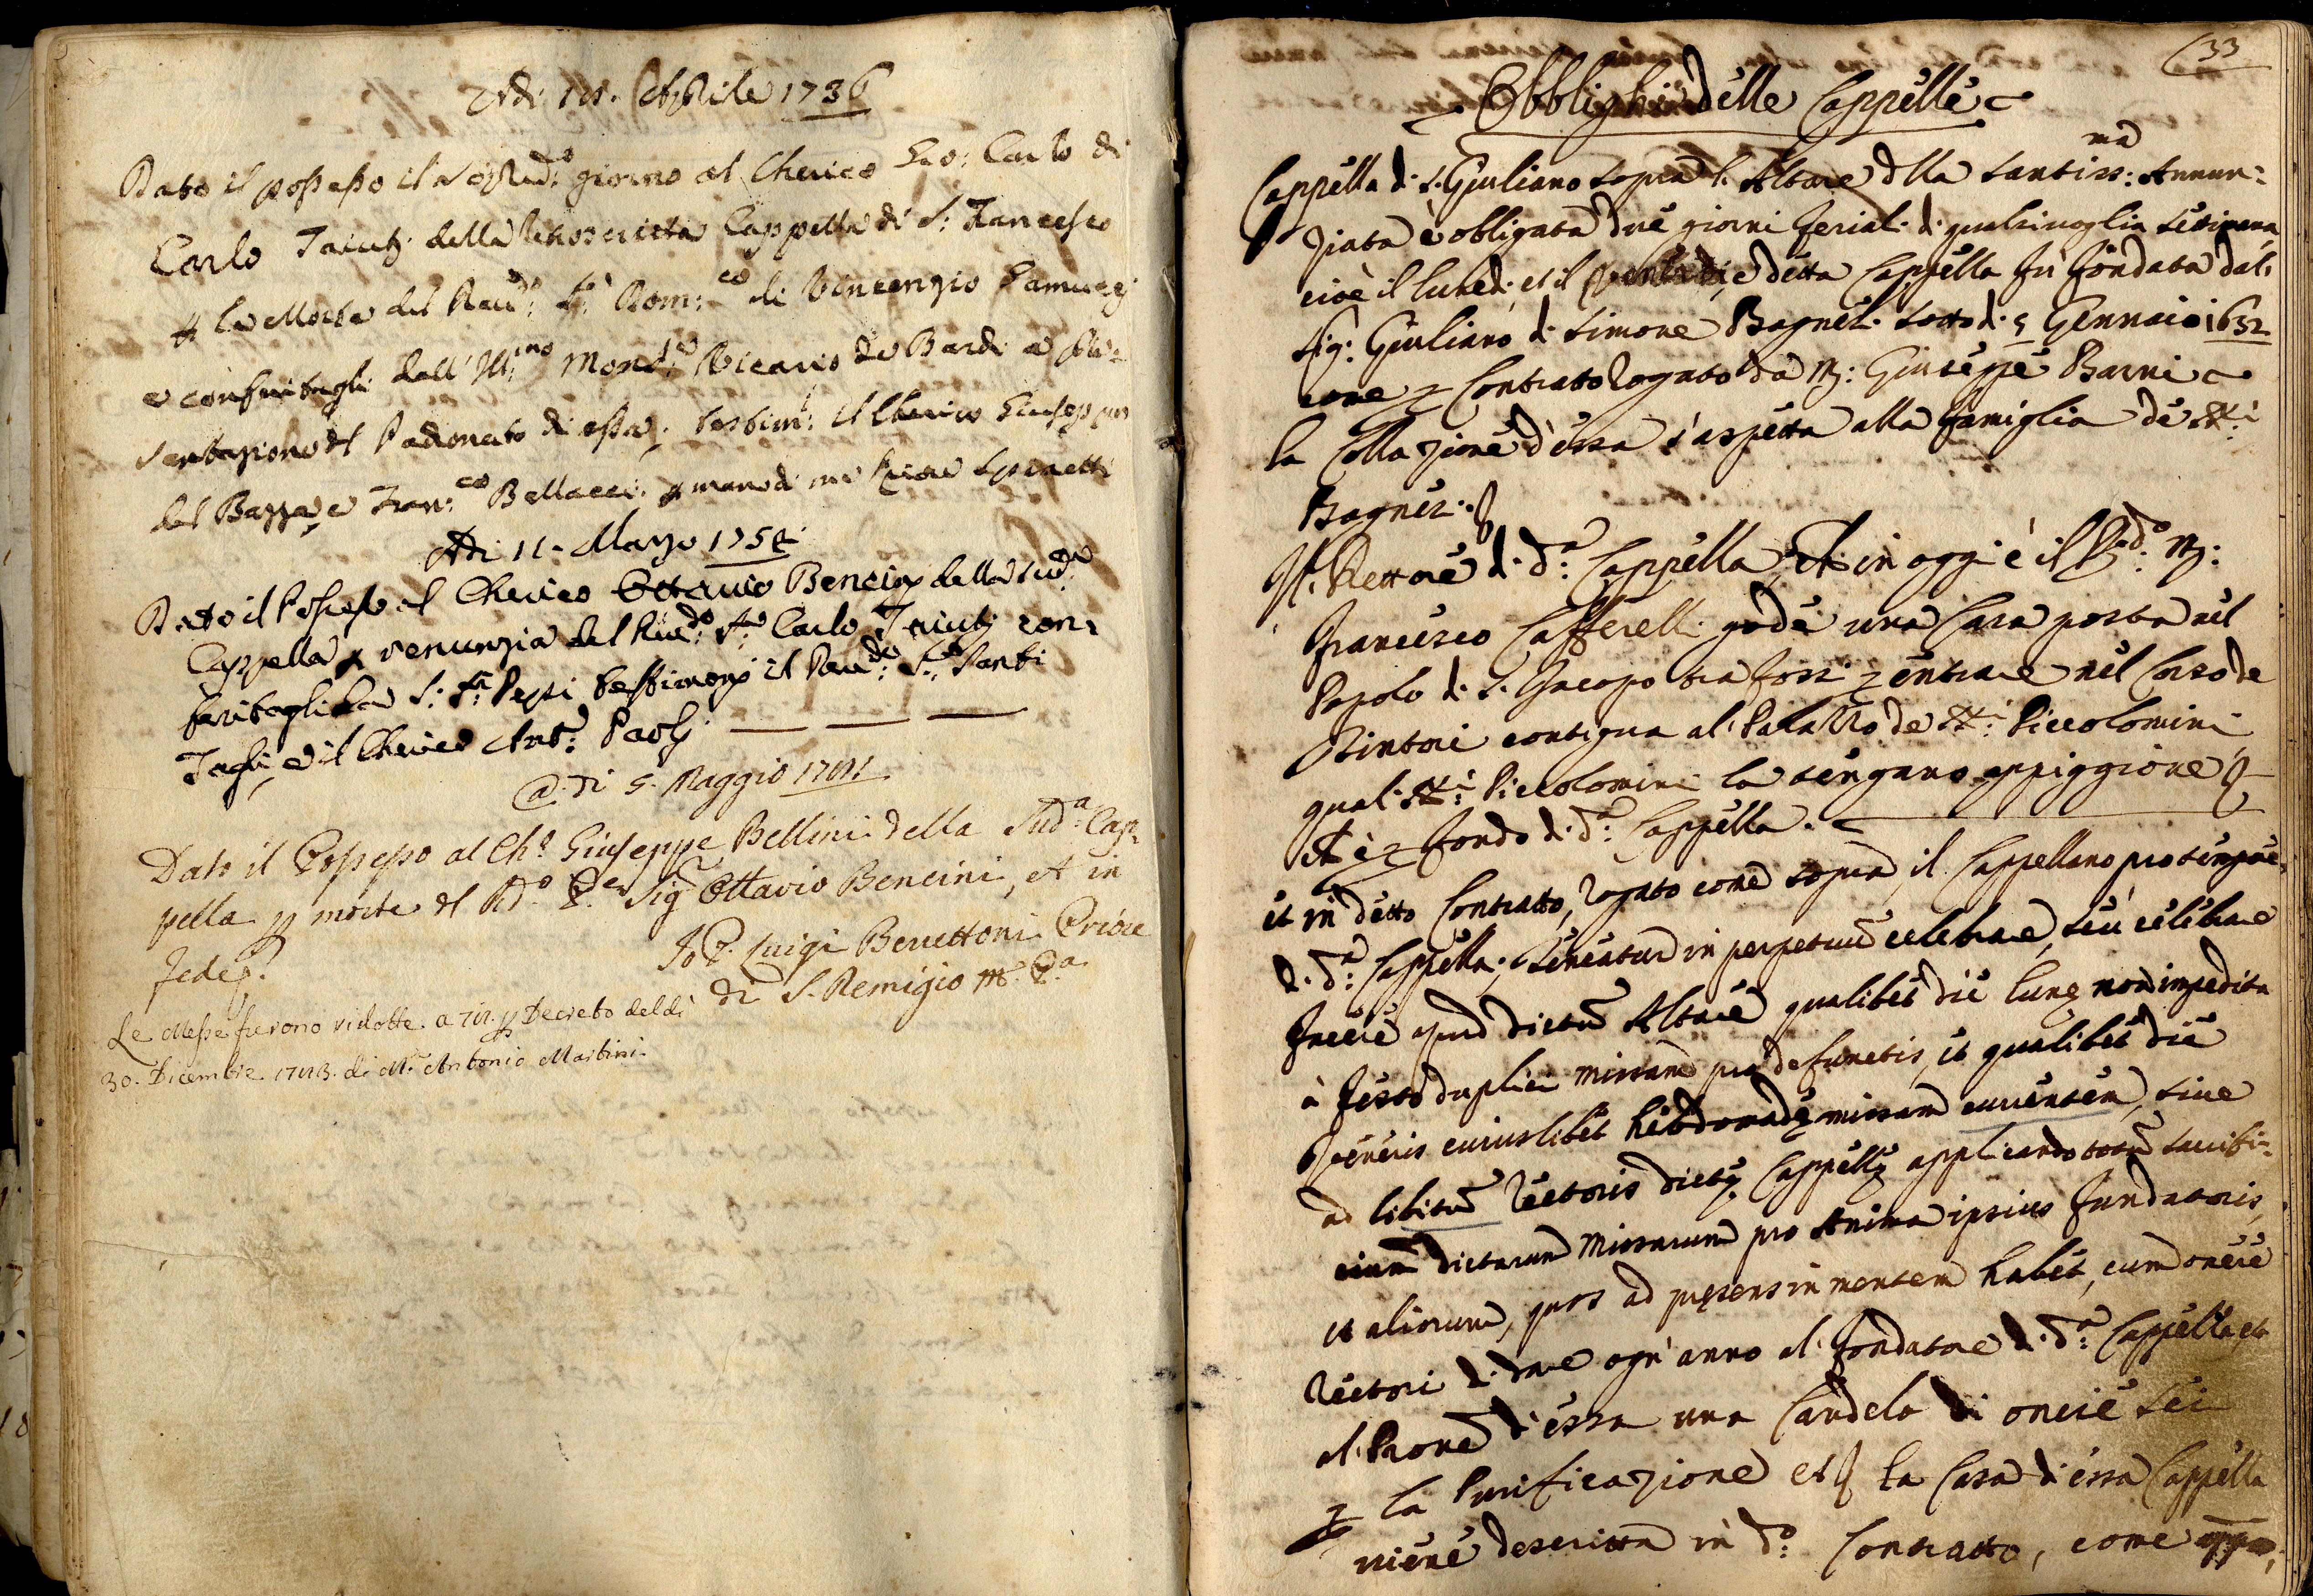 Adi 18. Aprile 1736
Dato il possesso il sop.d giorno al Cherico Gio: Carlo di
Carlo Taiuti della retroscritta Cappella di S: Francesco
p la Morte del Reu.d S.r Dom:co di Vincenzio Ramucci
e conferitagli dall' Ill:mo Mons.e Vicario de Bardi a pre=
sentazione del Padronato di essa, testim: il Cherico Giuseppe
del Bazza, e Fran:co Bellacci. p mano di me Priore Spinetti
Adi 11. Marzo 1754
Dato il Possesso al Cherico Ottavio Bencini della sud.a
Cappella p renunzia del Reu.do S.re Carlo Taiuti con=
feritagli da S: S.ri Pepi testimonj il Reu.do S.r Santi
Tagli, e il Cherico Ant.o Paoli
@ di 5. Maggio 1781
Dato il Possesso al Ch.o Giuseppe Bellini della Sud.a Cap=
pella p morte del R.do P.e Sig.r Ottavio Bencini, et in
fede.
Io P. Luigi Benettoni Priore
di S. Remigio M. P.a
Le Messe furono ridotte a 78. p Decreto del dì
30. Dicembre 1783. di M.r Antonio Martini
33
Obblighi delle Cappelle
Cappella di S. Giuliano sopra l'Altare dlla Santiss:ma Annun=
ziata è obligata due giorni feriali di qualsivoglia settimana
cioè il lunedi, et il Venerdi, e detta Cappella fu fondata dal
Sig: Giuliano di Simone Bagnesi sotto di 5 Gennaio 1632
come p Contratto rogato da M: Giuseppe Barni
la Collazione d'essa s'aspetta alla famiglia de SS.i
Bagnesi.
Il Rettore di d.a Cappella, che in oggi è il R.do M:
Francesco Cafferelli gode una Casa posta nel
Popolo di S. Iacopo tra fossi p entrare nel Corso de
Tintori contigua al Palazzo de SS.i Piccolomini
quali SS.i Piccolomini la tengano appiggione
et è p fondo di d.a Cappella.
et in detto Contratto, rogato come sopra, il Cappellano pro tempore
di d.a Cappella; teneatur in perpetuum celebrare, seu celebrare
facere apud dictum Altare qualibet die lunę non impedita
à festo duplici missam pro defunctis, et qualibet die
Veneris cuiuslibet hebdomadę missam currentem, sive
ad libitum Rectoris dictę Cappellę applicando totum sacrifi=
cium dictarum Missarum pro Anima ipsius fundatoris,
et aliorum, quos ad pręsens in mentem habet, cum onere
Rectori di dare ogn'anno al fondatore di d.a Cappella, et
al Prone d'essa una Candela di oncie sei
p la Purificazione et la Casa di essa Cappella
viene descritta in d.o Contratto, come appo,